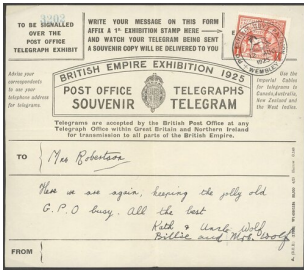 3202
TO BE SIGNALLED
OVER THE
POST OFFICE
TELEGRAPH EXHIBIT
WRITE YOUR MESSAGE ON THIS FORM
AFFIX A 1D. EXHIBITION STAMP HERE
AND WATCH YOUR TELEGRAM BEING SENT
A SOUVENIR COPY WILL BE DELIVERED TO YOU
WEMBLEY
1925
Advise your
correspondents
to use your
telephone address
for telegrams.
BRITISH EMPIRE EXHIBITION 1925
POST OFFICE TELEGRAPHS
SOUVENIR TELEGRAM
Use the
Imperial Cables
for telegrams to
Canada, Australia,
New Zealand and
the West Indies.
Telegrams are accepted by the British Post Office at any
Telegraph Office within Great Britain and Northern Ireland
for transmission to all parts of the British Empire.
TO
Mrs Robertson
Here we are again, keeping the jolly old
G.P.O busy. All the best
Kath & Uncle Wolf
Billie and Mrs. Woolf
FROM